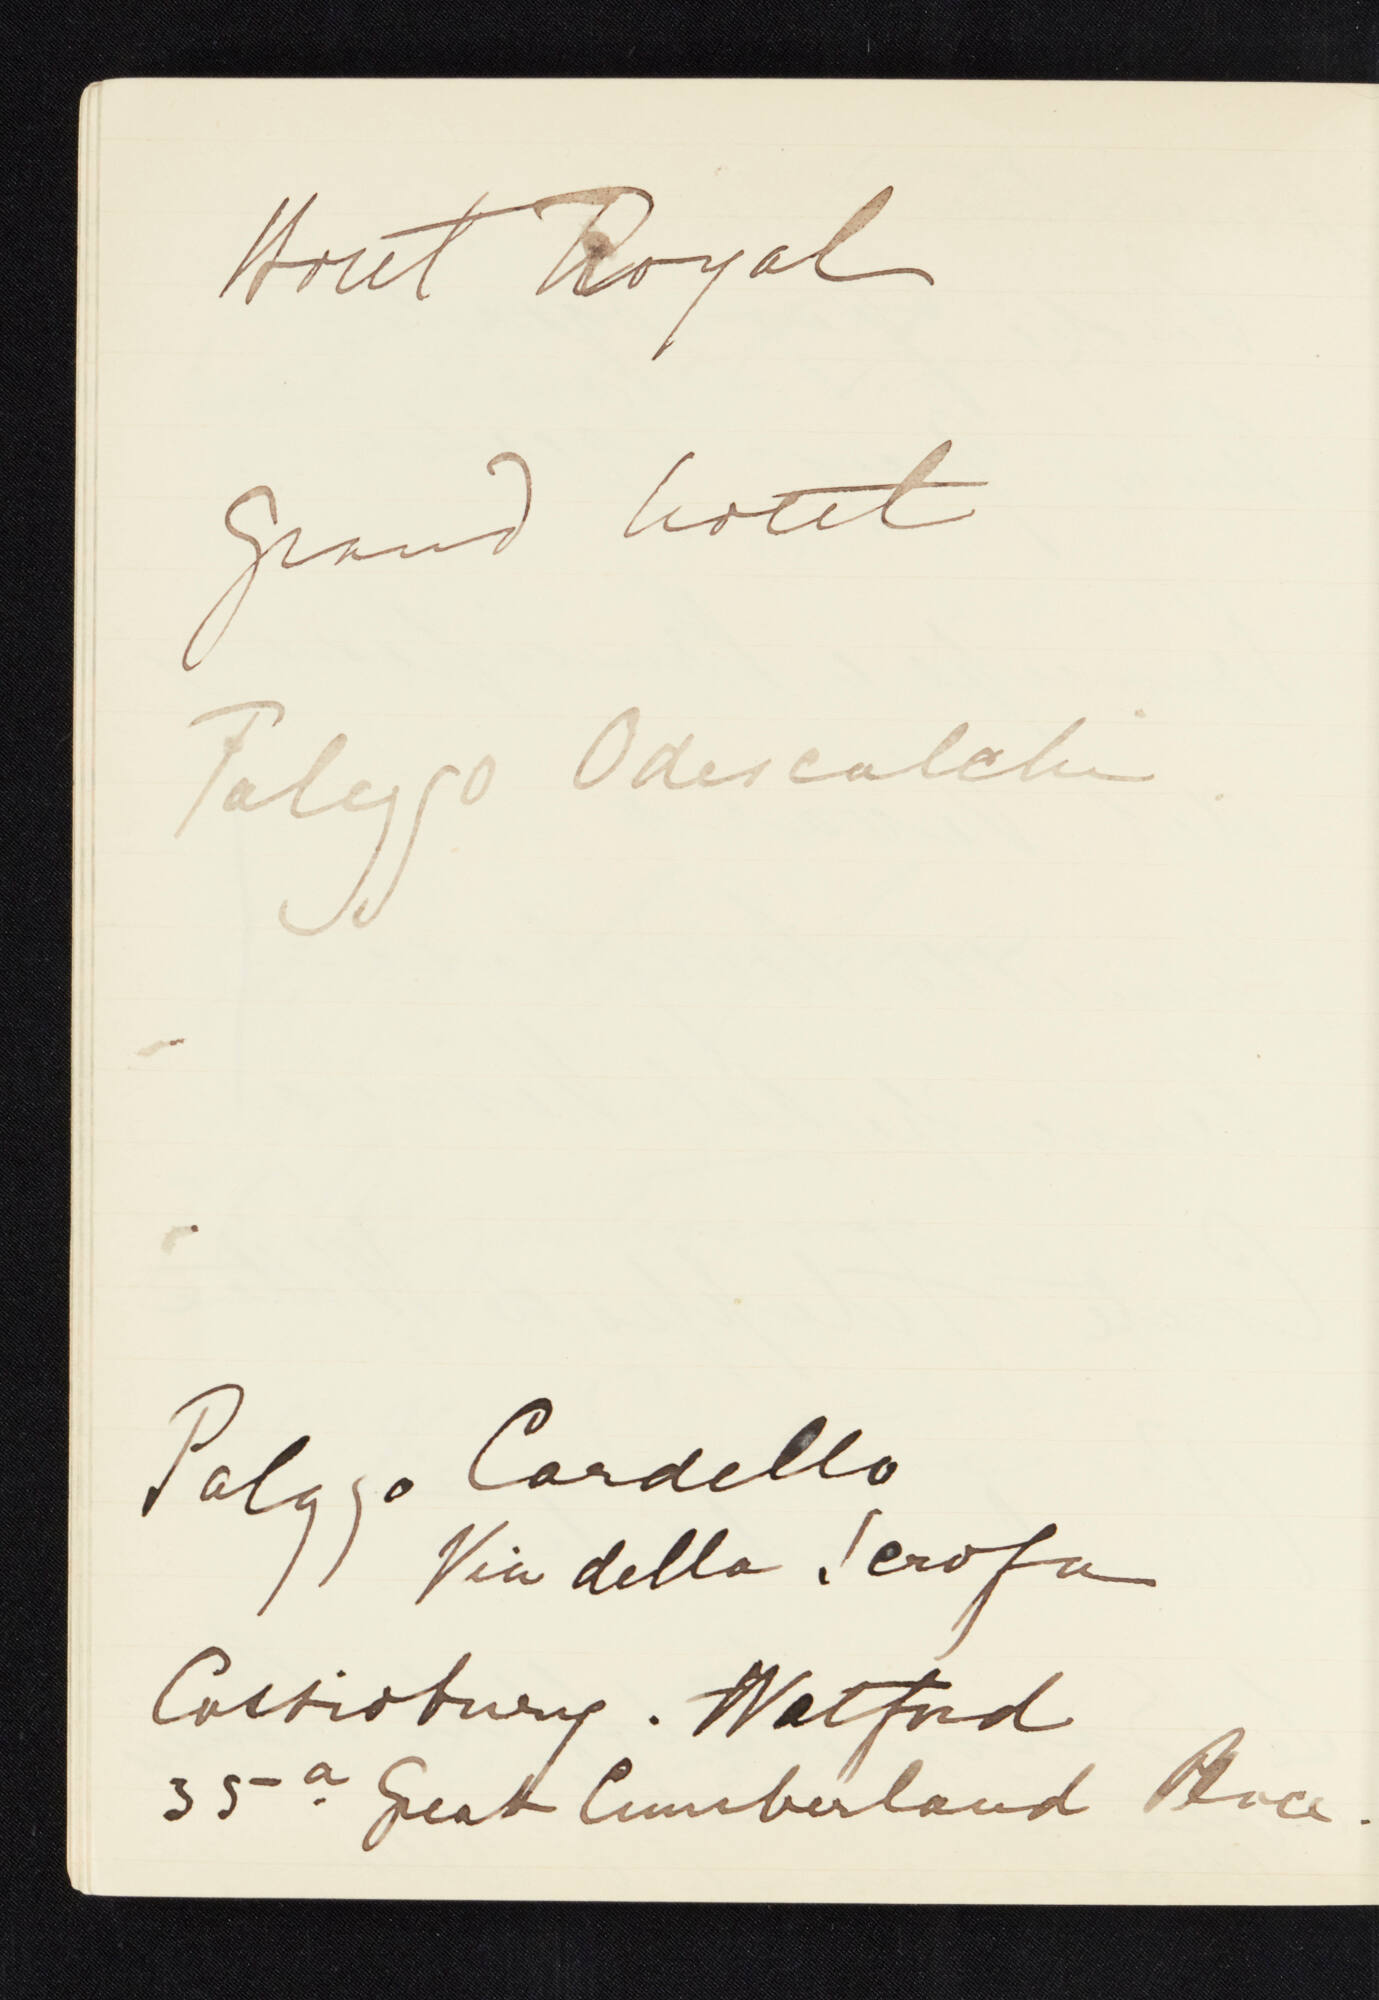 Hotel Royal
Grand hotel
Palazzo Odescalchi
Palazzo Cardello
Via della Scrofa
Cassiobury . Watford
35a Great Cumberland Place.